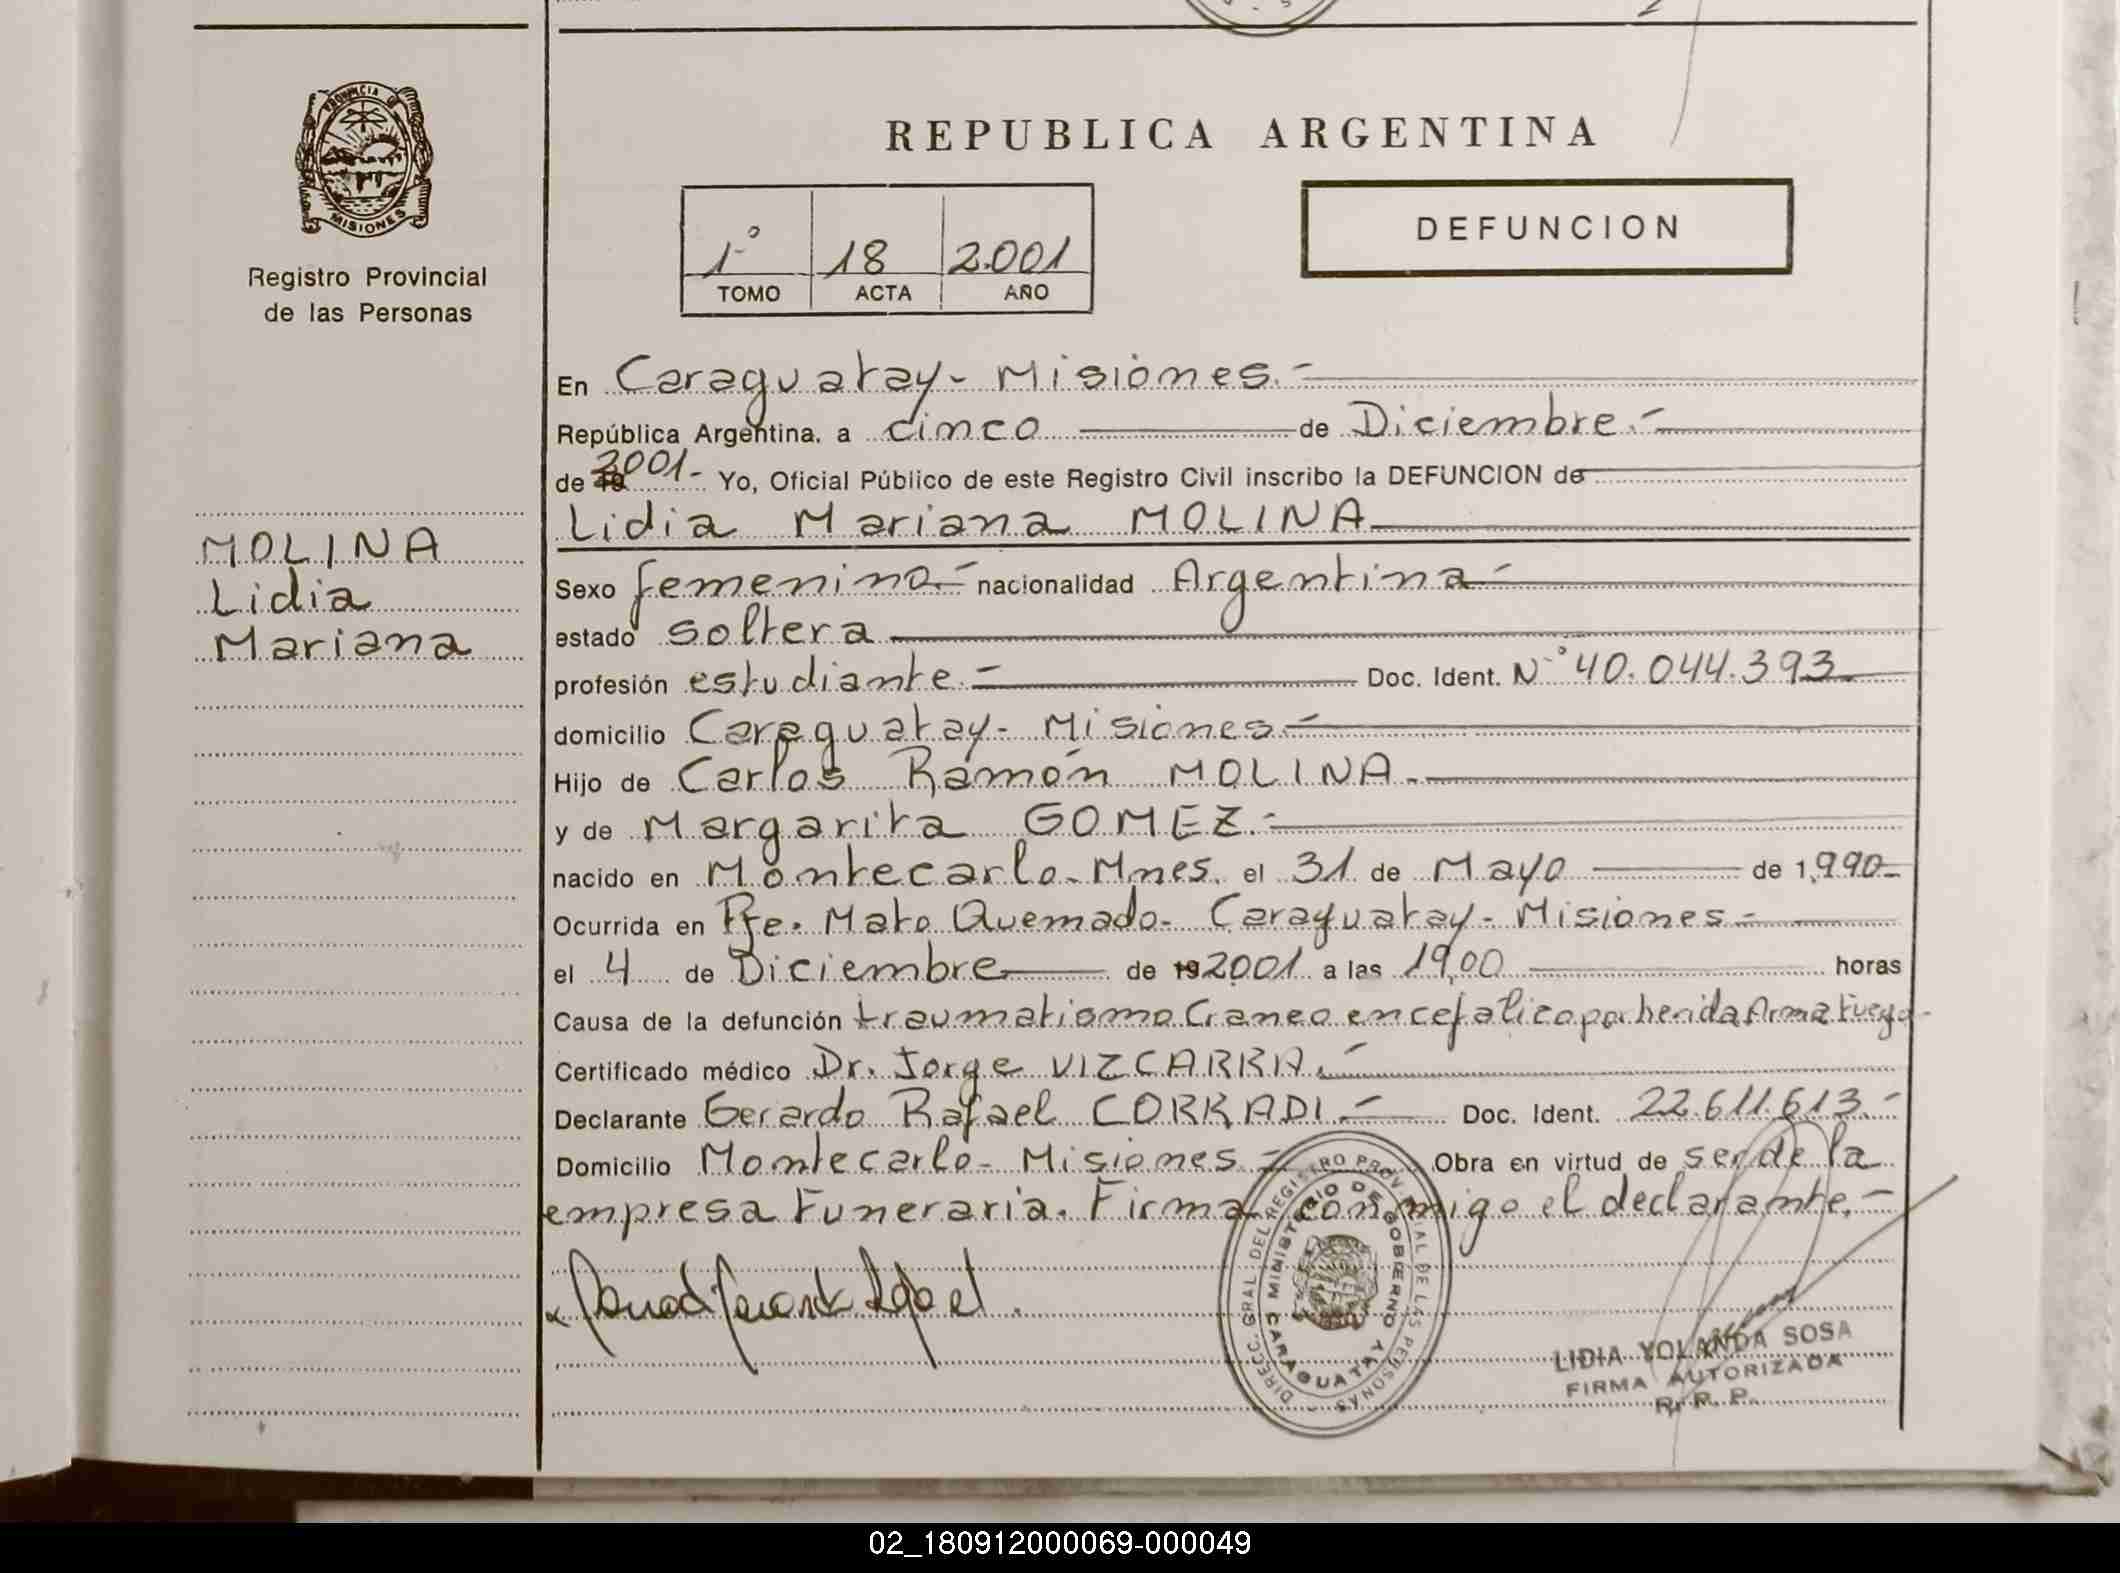 PROVINCIA DE
MISIONES
Registro Provincial
de las Personas
MOLINA
Lidia
Mariana
REPUBLICA ARGENTINA
1º 18 2.001
TOMO ACTA AÑO
DEFUNCION
En Caraguatay - Misiones.-
República Argentina, a cinco de Diciembre.-
de 19 2001.- Yo, Oficial Público de este Registro Civil inscribo la DEFUNCION de
Lidia Mariana MOLINA
Sexo femenino.- nacionalidad Argentina-
estado soltera
profesión estudiante.- Doc. Ident. Nº 40.044.393
domicilio Caraguatay - Misiones-
Hijo de Carlos Ramón MOLINA.-
y de Margarita GOMEZ.-
nacido en Montecarlo - Mnes. el 31 de Mayo de 1.990-
Ocurrida en Pje. Mato Quemado - Caraguatay - Misiones-
el 4 de Diciembre de 19 2001 a las 19,00 horas
Causa de la defunción traumatismo Craneo encefalico por herida Arma Fuego-
Certificado médico Dr. Jorge VIZCARRA.-
Declarante Gerardo Rafael CORRADI.- Doc. Ident. 22.611.613.-
Domicilio Montecarlo - Misiones.- Obra en virtud de ser de la
empresa Funeraria. Firma conmigo el declarante.-
DIRECC. GRAL DEL REGISTRO PROVINCIAL DE LAS PERSONAS
MINISTERIO DE GOBIERNO
CARAGUATAY
LIDIA YOLANDA SOSA
FIRMA AUTORIZADA
R. P. P.
02_180912000069-000049